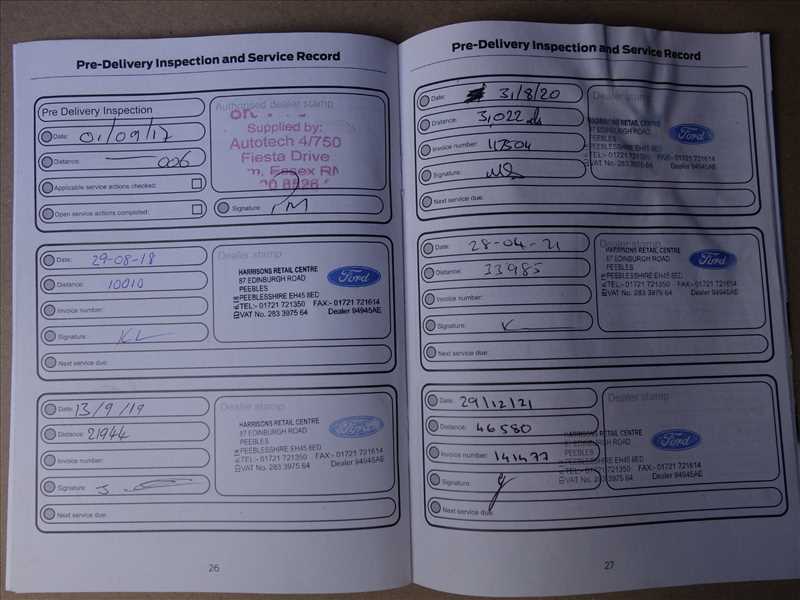 Pre-Delivery Inspection and Service Record
Pre Delivery Inspection
Date: 01/09/17
Distance: 006
Applicable service actions checked:
Open service actions completed:
Authorised dealer stamp
Supplied by:
Autotech 4/750
Fiesta Drive
Essex RM
Signature:
Date: 29-08-18
Distance: 10010
Invoice number:
Signature: KL
Next service due:
Dealer stamp
HARRISONS RETAIL CENTRE
87 EDINBURGH ROAD
PEEBLES
PEEBLESSHIRE EH45 8ED
TEL:- 01721 721350 FAX:- 01721 721614
VAT No. 283 3975 64 Dealer 94945AE
Ford
Date: 13/9/19
Distance: 21944
Invoice number:
Signature:
Next service due:
Dealer stamp
HARRISONS RETAIL CENTRE
87 EDINBURGH ROAD
PEEBLES
PEEBLESSHIRE EH45 8ED
TEL:- 01721 721350 FAX:- 01721 721614
VAT No. 283 3975 64 Dealer 94945AE
Ford
26
Pre-Delivery Inspection and Service Record
Date: 31/8/20
Distance: 31,022
Invoice number: 117504
Signature:
Next service due:
Dealer stamp
HARRISONS RETAIL CENTRE
87 EDINBURGH ROAD
PEEBLES
PEEBLESSHIRE EH45 8ED
TEL:- 01721 721350 FAX:- 01721 721614
VAT No. 283 3975 64 Dealer 94945AE
Ford
Date: 28-04-21
Distance: 33985
Invoice number:
Signature:
Next service due:
Dealer stamp
HARRISONS RETAIL CENTRE
87 EDINBURGH ROAD
PEEBLES
PEEBLESSHIRE EH45 8ED
TEL:- 01721 721350 FAX:- 01721 721614
VAT No. 283 3975 64 Dealer 94945AE
Ford
Date: 29/12/21
Distance: 46580
Invoice number: 141477
Signature:
Next service due:
Dealer stamp
HARRISONS RETAIL CENTRE
87 EDINBURGH ROAD
PEEBLES
PEEBLESSHIRE EH45 8ED
TEL:- 01721 721350 FAX:- 01721 721614
VAT No. 283 3975 64 Dealer 94945AE
Ford
27